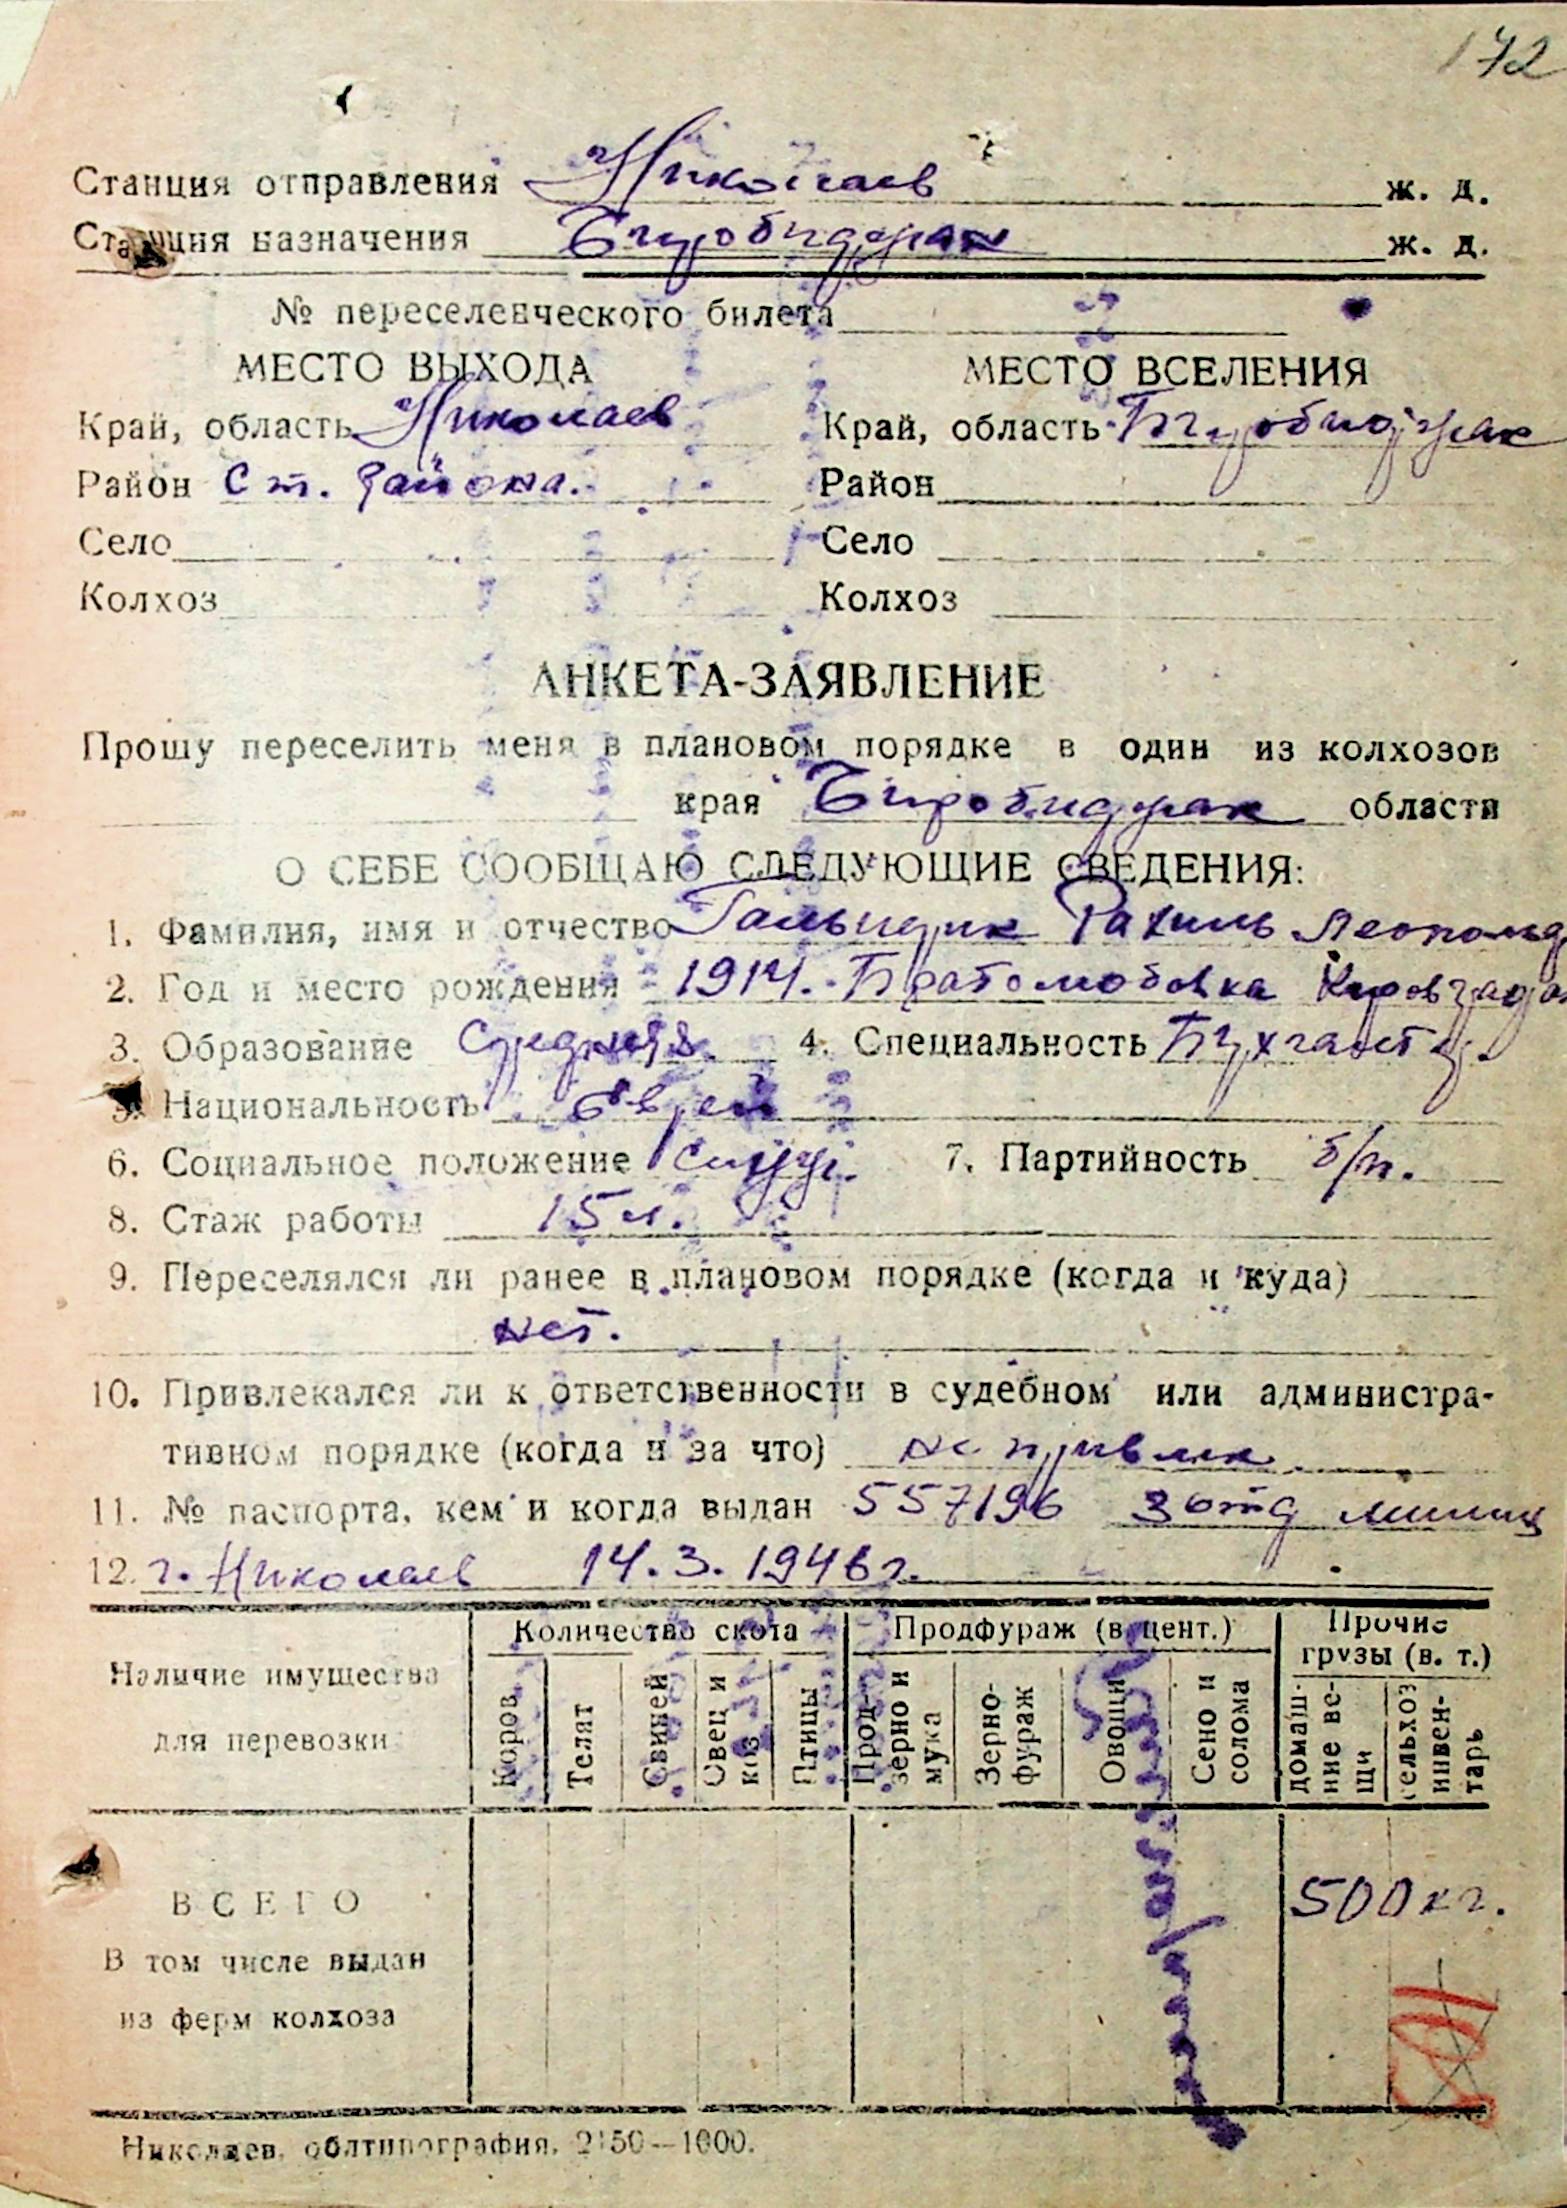 172
Станция отправления Николаев ж. д.
Станция назначения Биробиджан ж. д.
№ переселенческого билета
МЕСТО ВЫХОДА МЕСТО ВСЕЛЕНИЯ
Край, область Николаев Край, область Биробиджан
Район Ст. района. Район
Село Село
Колхоз Колхоз
АНКЕТА-ЗАЯВЛЕНИЕ
Прошу переселить меня в плановом порядке в один из колхозов
края Биробиджан области
О СЕБЕ СООБЩАЮ СЛЕДУЮЩИЕ СВЕДЕНИЯ:
1. Фамилия, имя и отчество Гальперик Рахиль Леопольд
2. Год и место рождения 1914. Братолюбовка
3. Образование Средняя. 4. Специальность Бухгалтер.
5. Национальность еврей
6. Социальное положение служ. 7. Партийность б/п.
8. Стаж работы 15 л.
9. Переселялся ли ранее в плановом порядке (когда и куда)
нет.
10. Привлекался ли к ответственности в судебном или администра-
тивном порядке (когда и за что) не привлек
11. № паспорта, кем и когда выдан 557196 3 отд милиц
12. г. Николаев 14.3.1946 г.
Наличие имущества для перевозки
Количество скота Продфураж (в цент.) Прочие грузы (в. т.)
Коров Телят Свиней Овец и коз Птицы Прод-зерно и мука Зерно-фураж Овощи Сено и солома домаш-ние ве-щи сельхоз инвен-тарь
ВСЕГО 500 кг.
В том числе выдан
из ферм колхоза
Николаев, облтипография, 2150—1000.